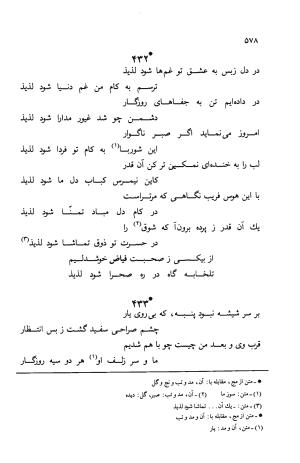 ۵۷۸
*۴۳۲
در دل زبس به عشق تو غم‌ها شود لذیذ
ترسم به کام من غم دنیا شود لذیذ
در داده‌ایم تن به جفاهای روزگار
دشمن چو شد غیور مدارا شود لذیذ
امروز می‌نماید اگر صبر ناگوار
این شوربا(۱) به کام تو فردا شود لذیذ
لب را به خنده‌ای نمکین‌تر کن آن قدر
کاین نیمرس کباب دل ما شود لذیذ
با این هوس فریب نگاهی که مرتراست
در کام دل مباد تمنّا شود لذیذ
یك آن قدر ز پرده برون‌آ که شوق(۲) را
در حسرت تو ذوق تماشا شود لذیذ(۳)
از بیکسی ز صحبت فیاض خوشدلیم
تلخابه گاه در ره صحرا شود لذیذ
*۴۳۳
بر سر شیشه نبود پنبه، که بی‌روی یار
چشم صراحی سفید گشت ز بس انتظار
قرب وی و بعد من چیست چو با هم شدیم
ما و سر زلف او(۱) هر دو سیه روزگار
* - متن از مج، مقابله با: آن، مد و تب و نج و گل
(۱) - متن: سوز ما (۲) - آن، مد و تب: صبر، گل: دیده
(۳) - متن: - یك آن... تماشا شود لذیذ
* - متن از مج، مقابله با: آن و مد و تب
(۱) - متن، آن و مد: یار